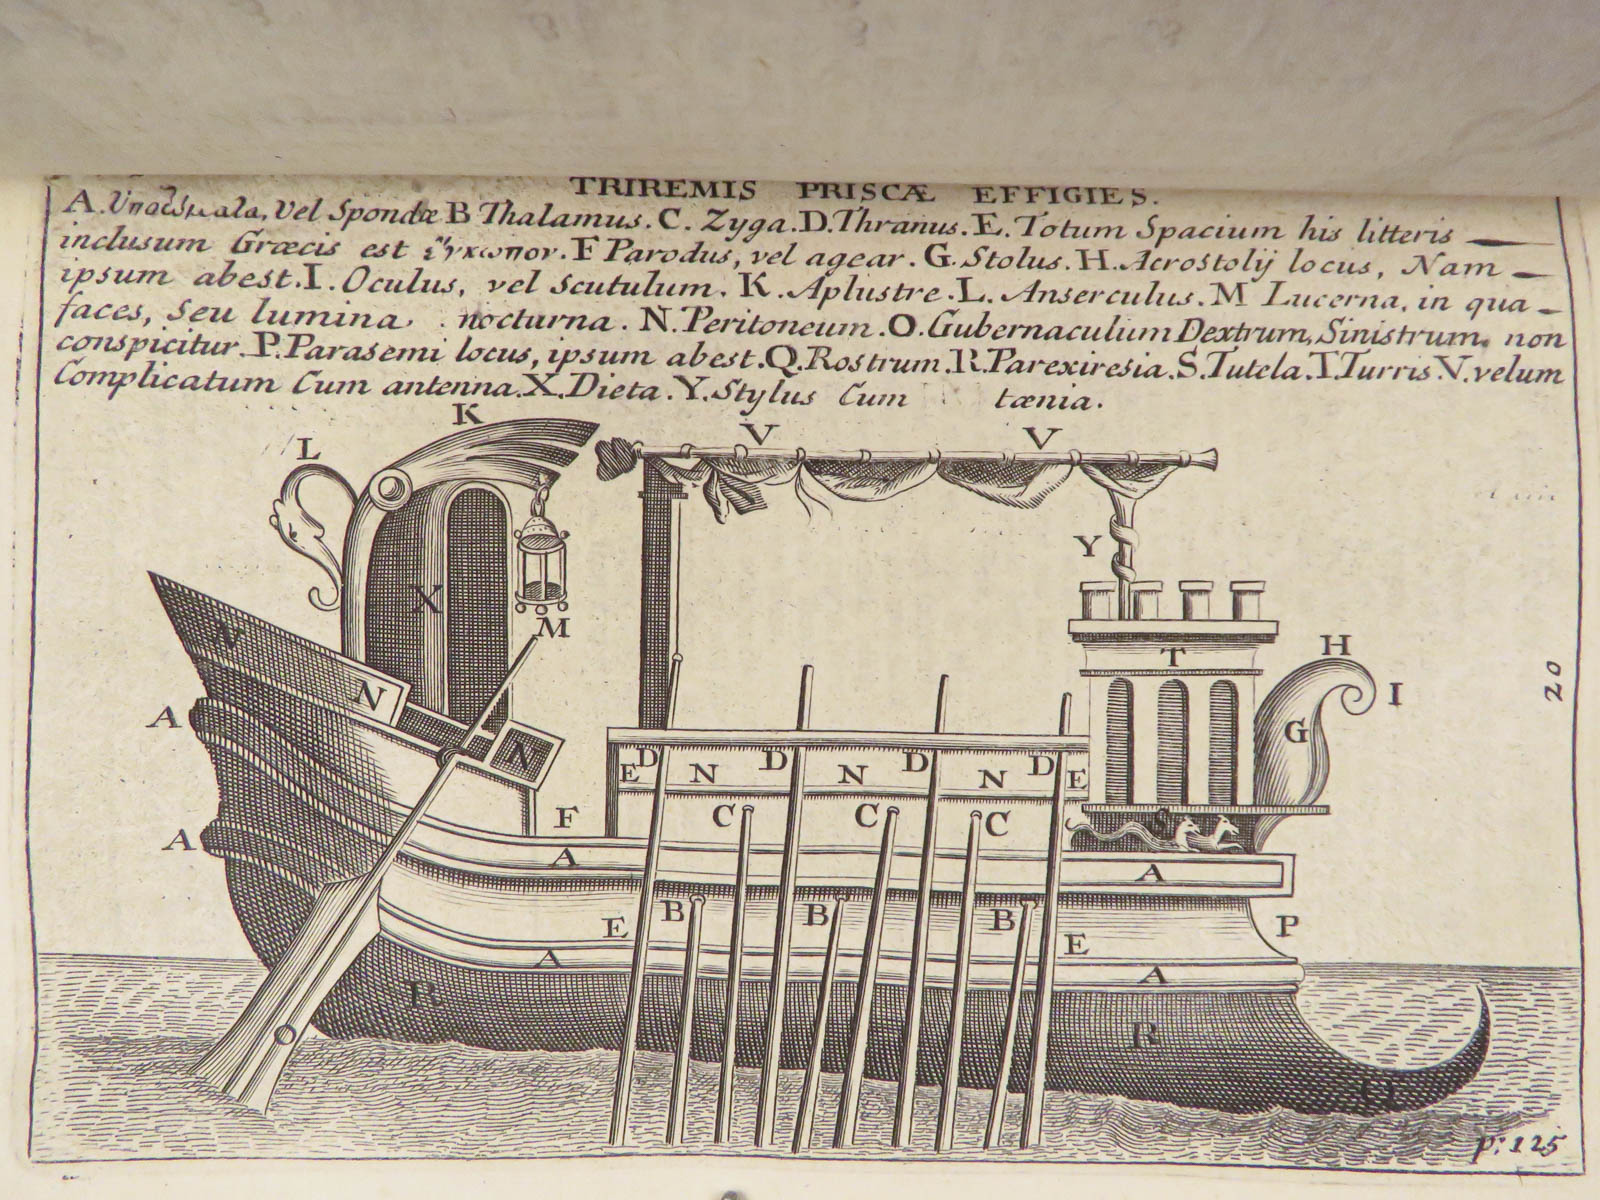 TRIREMIS PRISCÆ EFFIGIES.
A. Vel Spondæ B Thalamus. C. Zyga. D. Thranus. E. Totum Spacium his litteris
inclusum Græcis est F Parodus, vel agear. G. Stolus. H. Acrostolij locus, Nam
ipsum abest. I. Oculus, vel Scutulum. K. Aplustre. L. Anserculus. M Lucerna, in qua
faces, Seu lumina nocturna. N. Peritoneum. O. Gubernaculum Dextrum, Sinistrum. non
conspicitur. P. Parasemi locus, ipsum abest. Q. Rostrum. R. Parexiresia. S. Tutela. T. Turris V. velum
Complicatum Cum antenna. X. Dieta. Y. Stylus Cum tænia.
K
V V
L
Y
X
M
H
N
T
I
20
N
A
G
N
D D D D
E N N N E
F C C C
S
A
A A
B B B
E E
P
A A
R
R
O
Q
p: 125